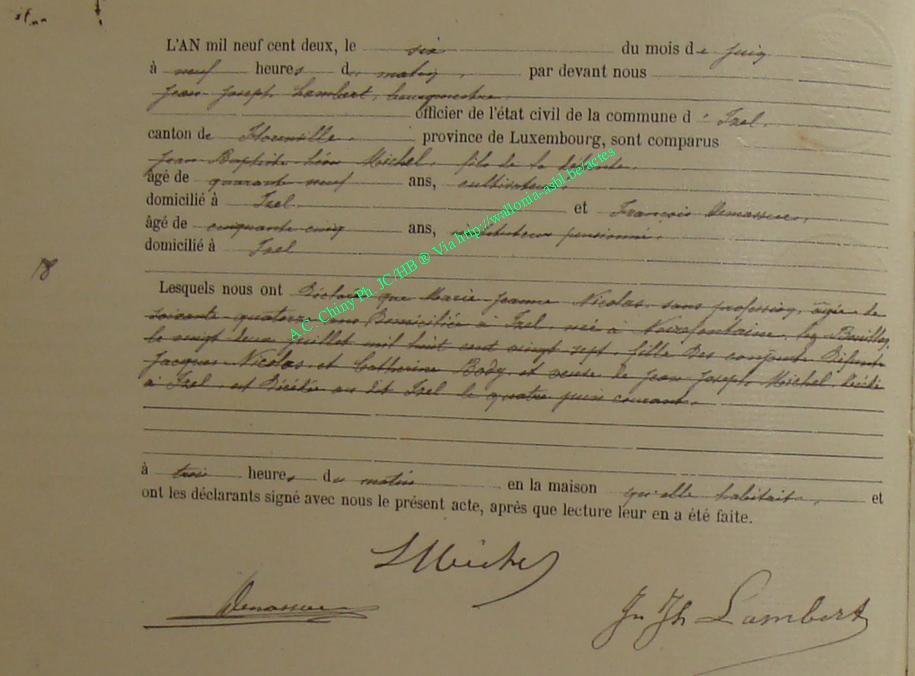 L'AN mil neuf cent deux, le six du mois de juin
à neuf heures du matin, par devant nous
Jean Joseph Lambert, bourgmestre
officier de l'état civil de la commune d'Izel,
canton de Florenville, province de Luxembourg, sont comparus
Jean Baptiste Léon Michel, fils de la défunte,
âgé de quarante neuf ans, cultivateur
domicilié à Izel et François
âgé de cinquante cinq ans, instituteur pensionné,
domicilié à Izel
18
Lesquels nous ont déclaré que Marie Jeanne Nicolas, sans profession, âgée de
soixante quatorze ans domiciliée à Izel, née à lez Bouillon
le vingt deux juillet mil huit cent vingt sept, fille des conjoints défunts
Jacques Nicolas et Catherine Body et veuve de Jean Joseph Michel, décédé
à Izel, est décédée au dit Izel le quatre juin courant,
à trois heures du matin en la maison qu'elle habitait, et
ont les déclarants signé avec nous le présent acte, après que lecture leur en a été faite.
LMichel
Jn Jh Lambert
A.C. Chiny Ph. JC/HB ® Via http://wallonia-asbl.be/actes